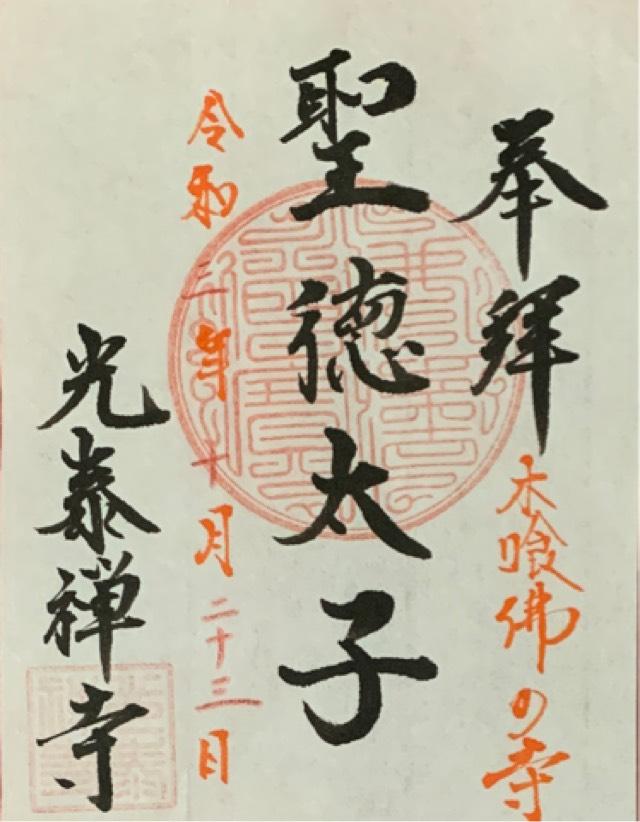 奉拜
木喰佛の寺
聖徳太子
令和三年十月二十三日
光泰禅寺